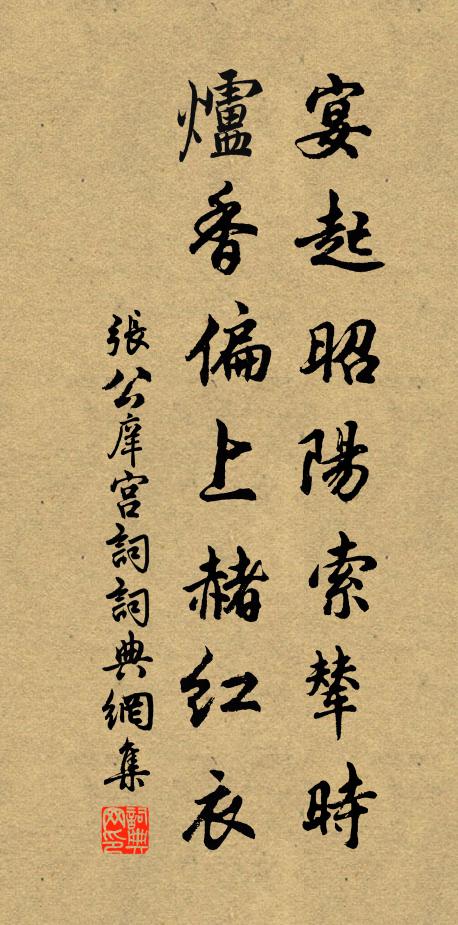 宴起昭陽索輦時
爐香偏上赭紅衣
張公庠宮詞詞典網集
詞典網印